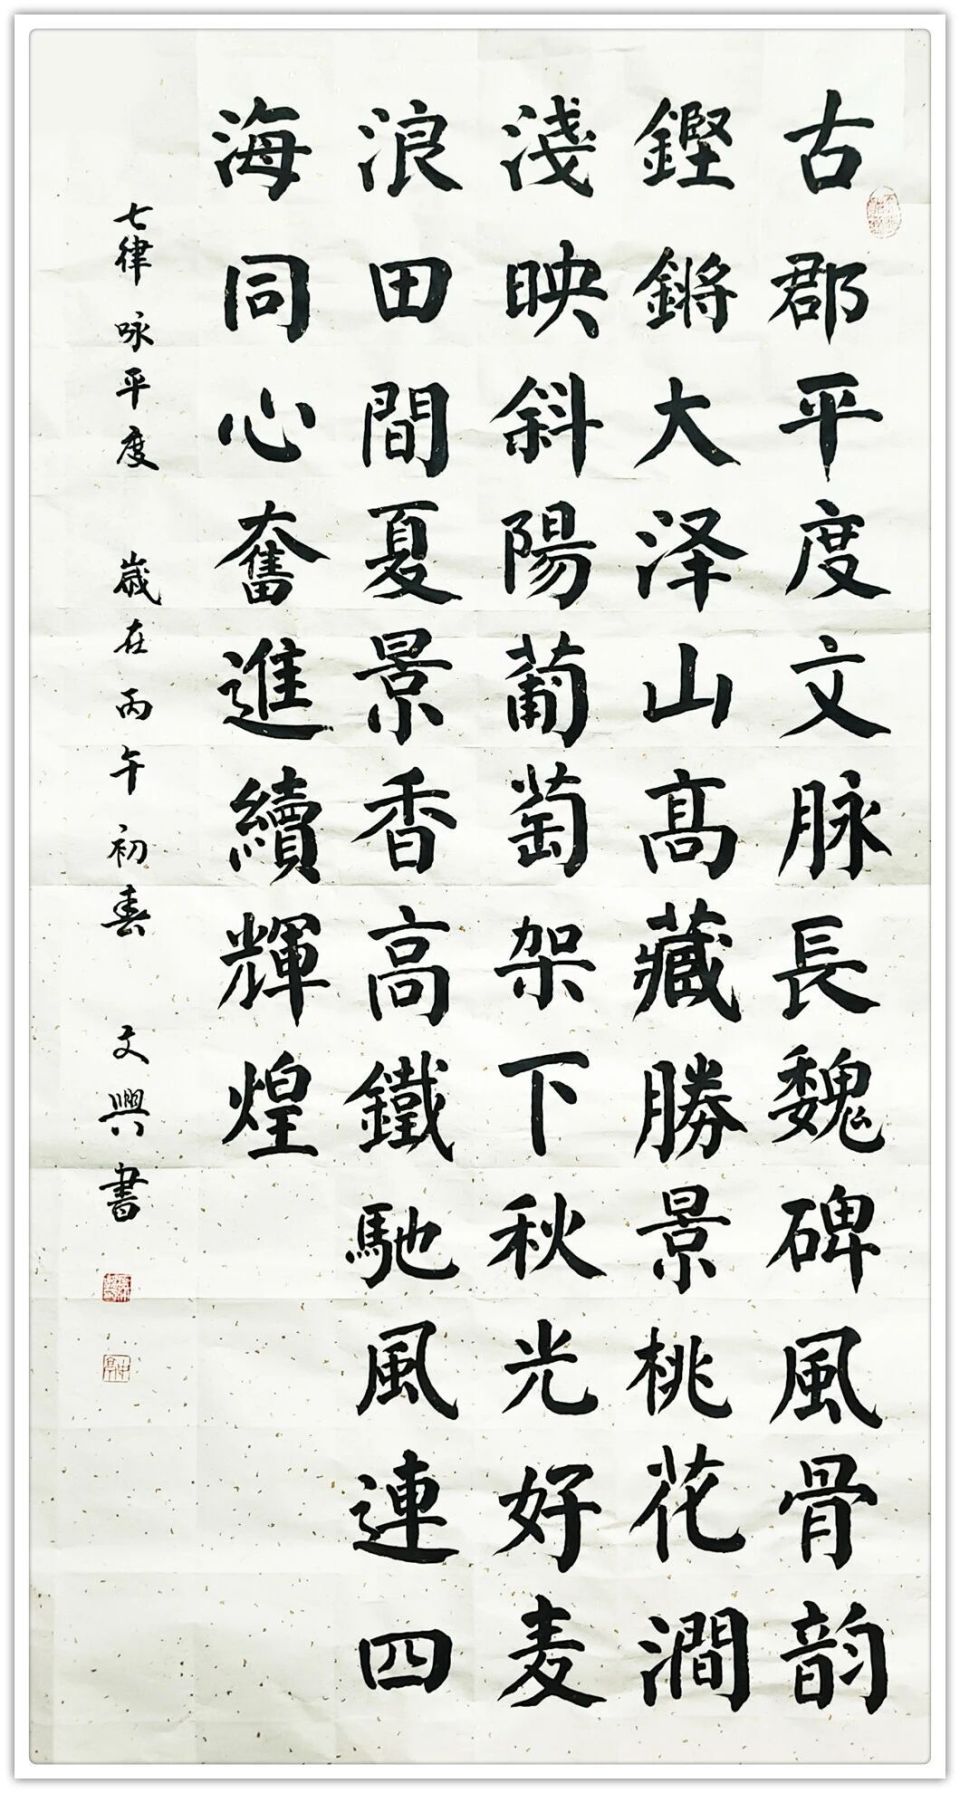 古郡平度文脉長魏碑風骨韵
鏗鏘大泽山高藏勝景桃花澗
淺映斜陽葡萄架下秋光好麦
浪田間夏景香高鐵馳風連四
海同心奮進續輝煌
七律 咏平度 歲在丙午初春 文興書